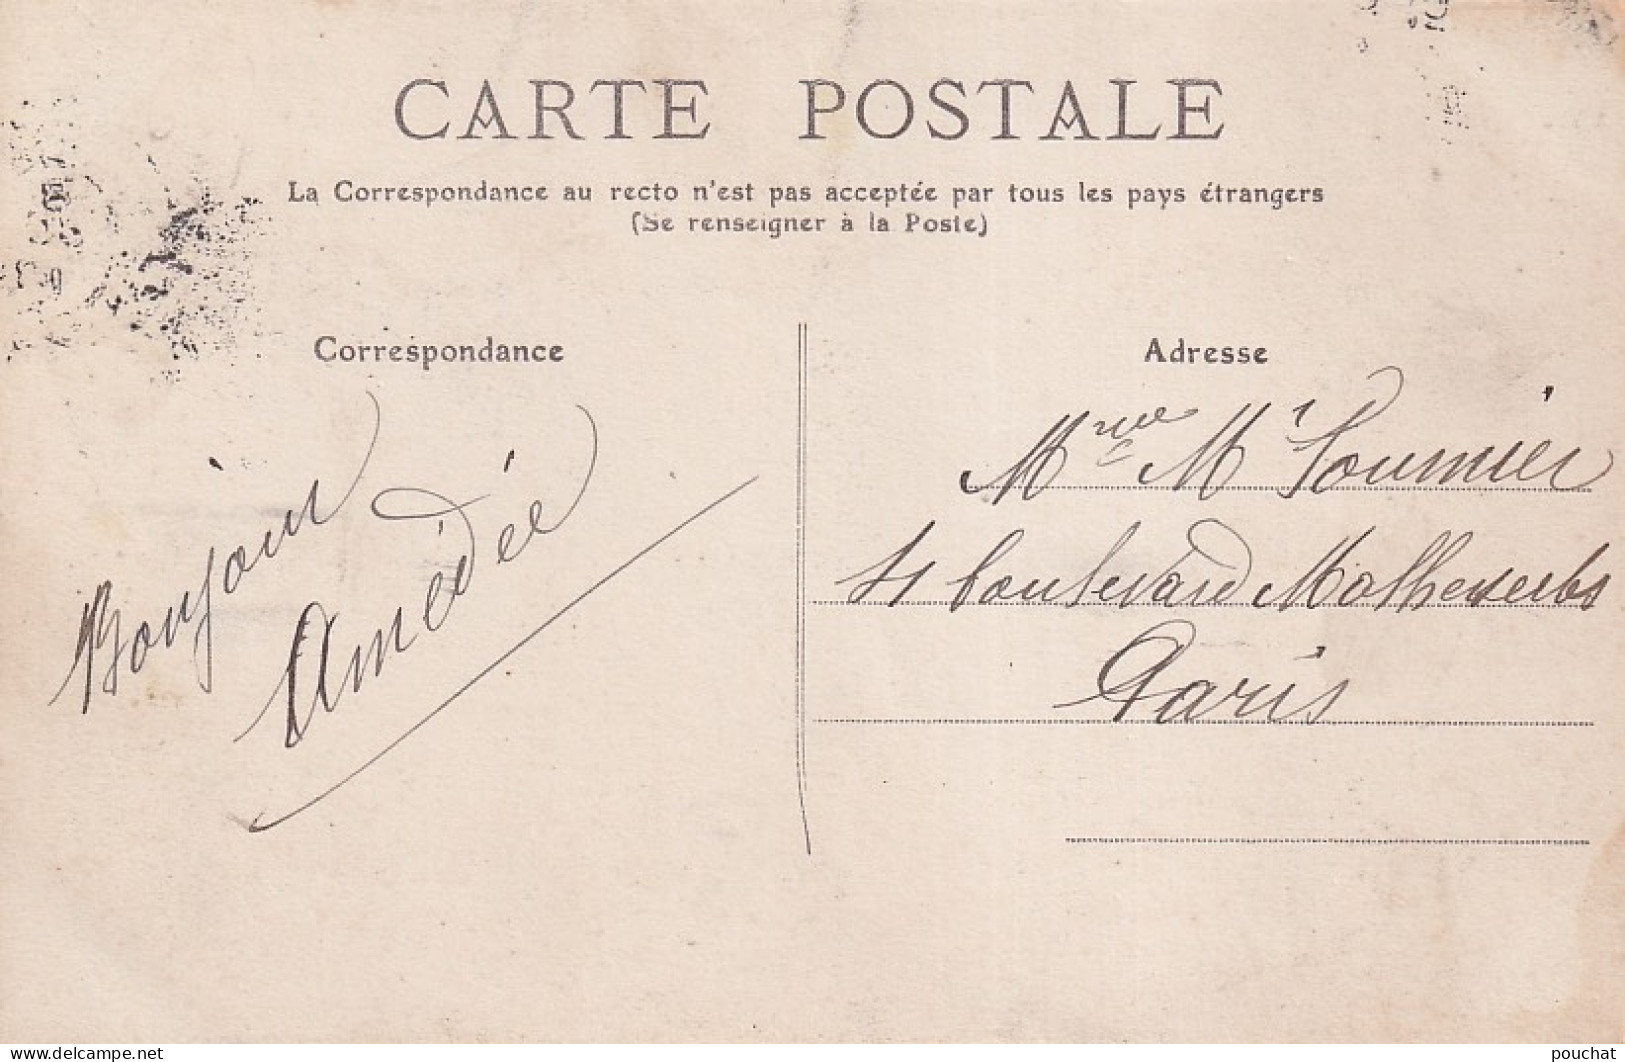 CARTE POSTALE
La Correspondance au recto n'est pas acceptée par tous les pays étrangers
(Se renseigner à la Poste)
Correspondance
Bonjour
Amédée
Adresse
Mme M
boulevard Malheserbs
Paris
www.delcampe.net
pouchat